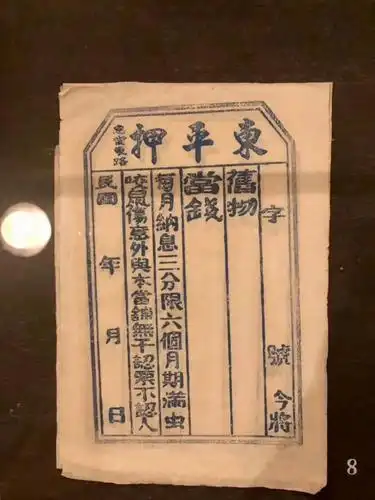 東平押
惠愛東路
字 號 今將
舊物
當錢
每月納息三分限六個月期滿虫
咬鼠傷意外與本當舖無干認票不認人
民國 年 月 日
8